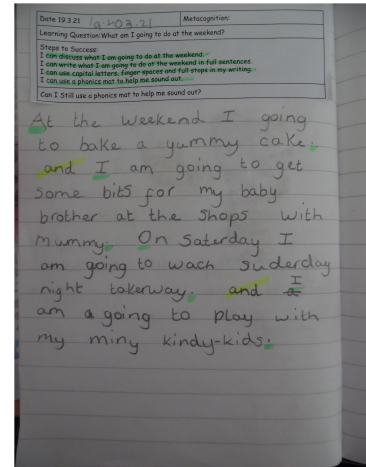 Date 19.3.21 19.03.21 Metacognition:
Learning Question:What am I going to do at the weekend?
Steps to Success:
I can discuss what I am going to do at the weekend.
I can write what I am going to do at the weekend in full sentences.
I can use capital letters, finger spaces and full stops in my writing.
I can use a phonics mat to help me sound out.
Can I Still use a phonics mat to help me sound out?
At the weekend I going
to bake a yummy cake.
and I am going to get
some bits for my baby
brother at the shops with
mummy. On Saterday I
am going to wach suderday
night takerway. and I
am a going to play with
my miny kindy-kids.